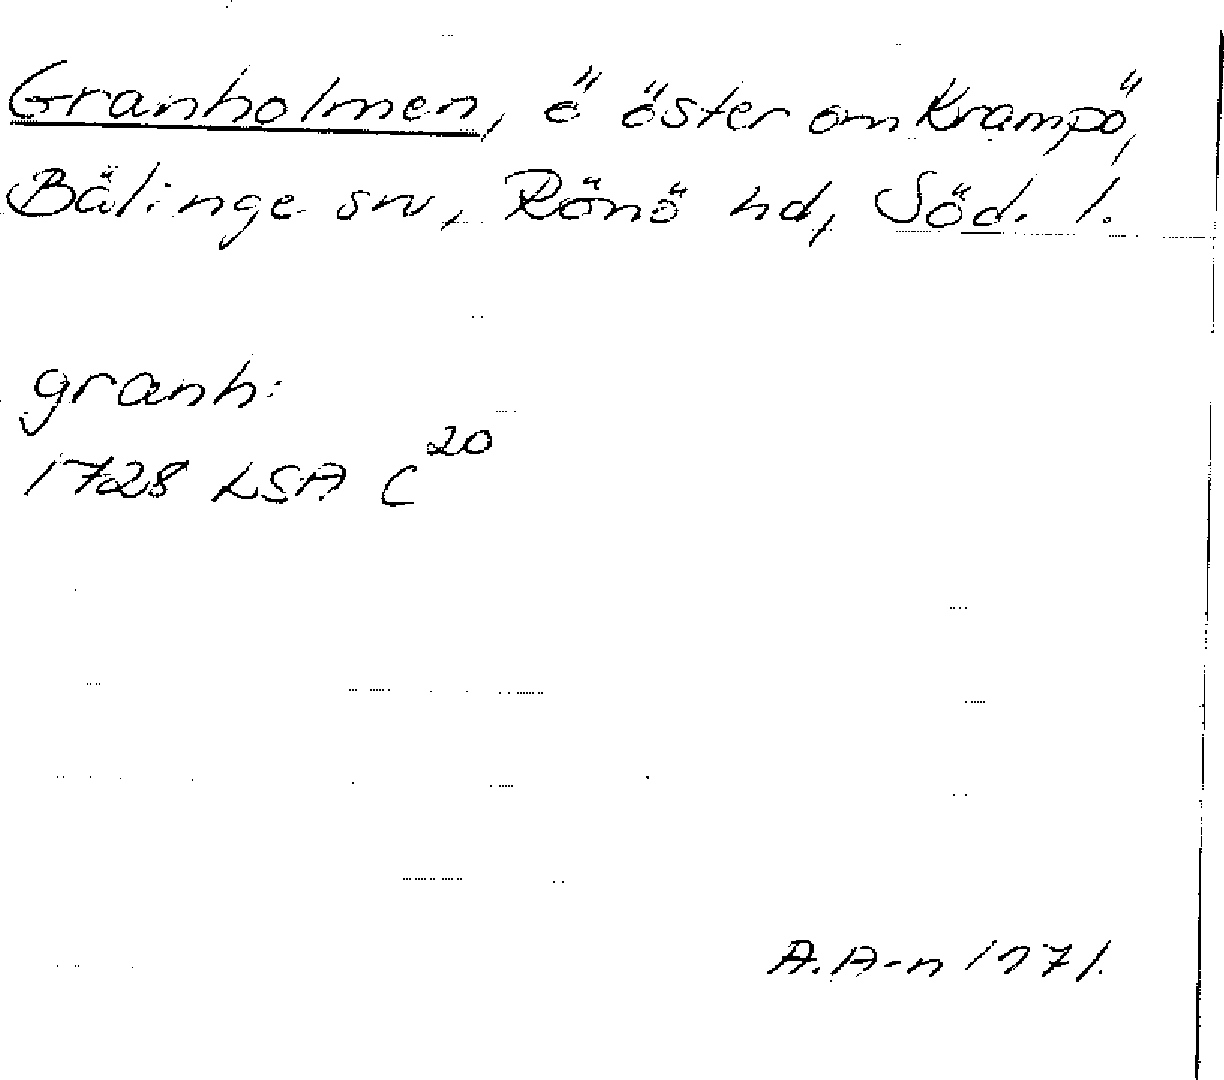 Granholmen, ö öster om Krampö,
Bälinge sn, Rönö hd, Söd. l.
granh:
1728 LSA C20
A. A-n 1971.